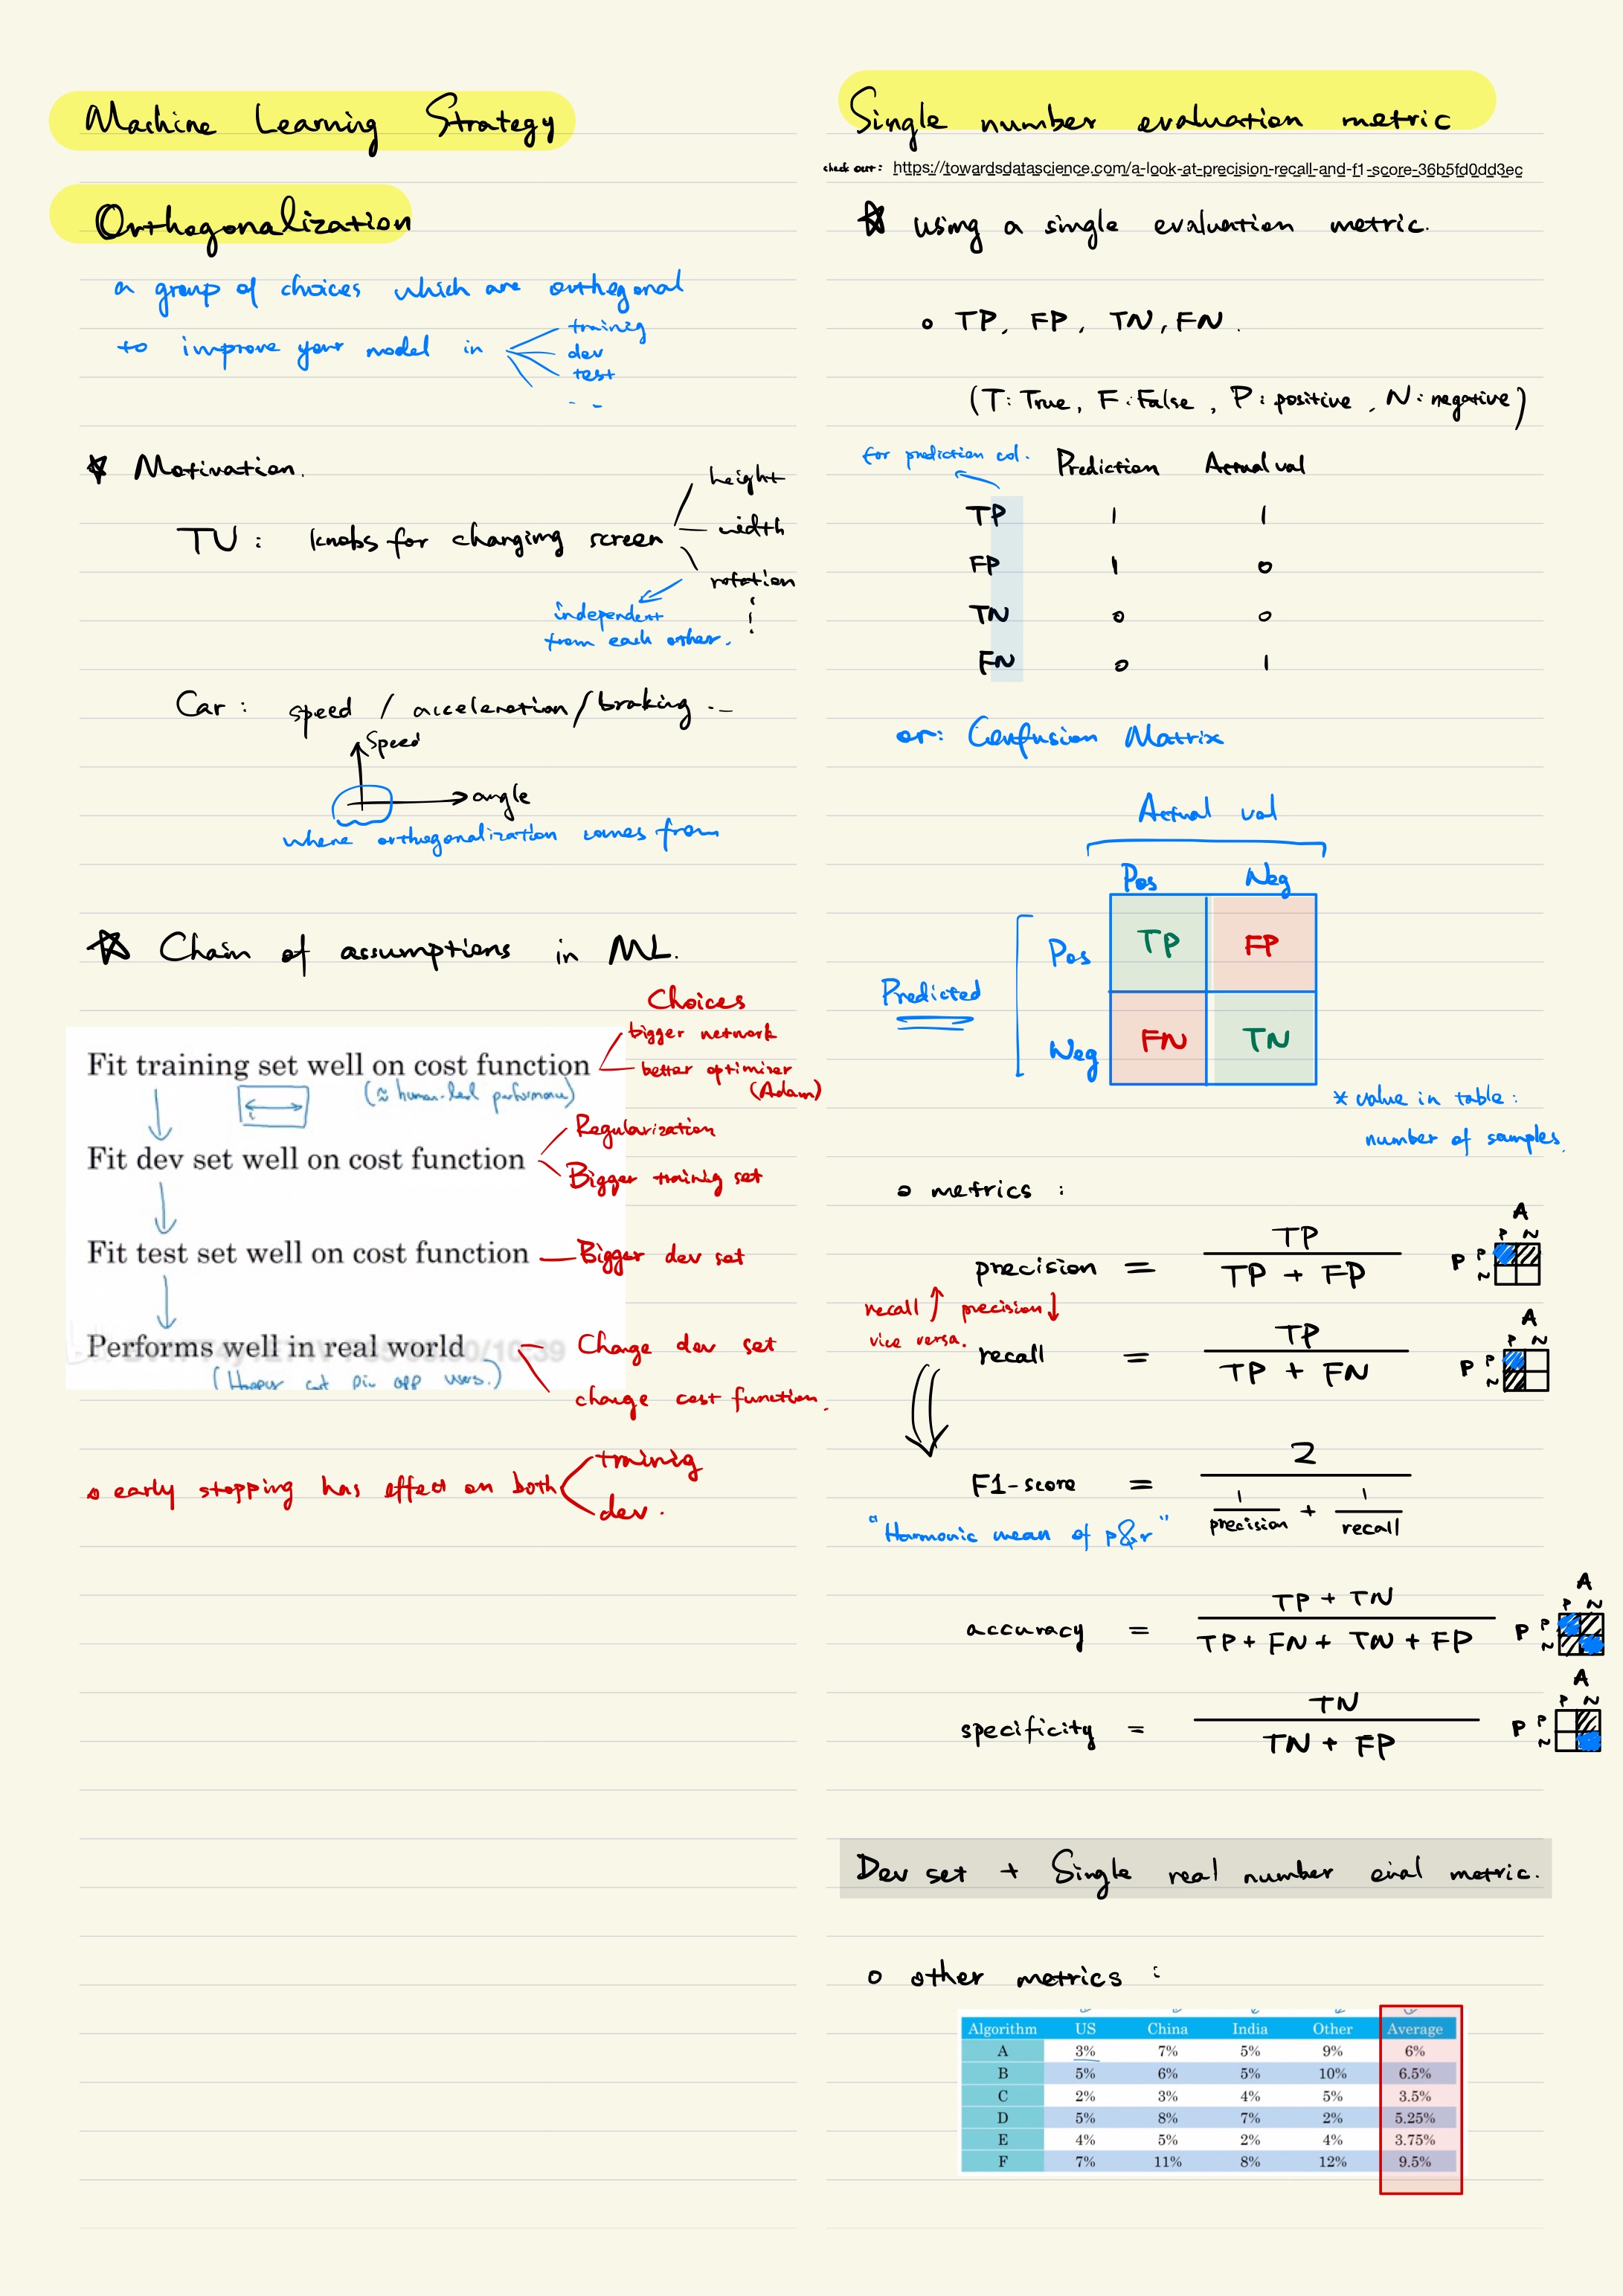 Machine Learning Strategy
Orthogonalization
a group of choices which are orthogonal
to improve your model in
trainig
dev
test
...
Motivation.
TV : knobs for changing screen
height
width
rotation
independent
from each other.
Car : speed / acceleration / braking ...
Speed
angle
where orthogonalization comes from
Chain of assumptions in ML.
Choices
Fit training set well on cost function
bigger network
better optimizer
(Adam)
(≈ human-level performance)
Fit dev set well on cost function
Regularization
Bigger trainig set
Fit test set well on cost function
Bigger dev set
Performs well in real world
Change dev set
change cost function.
(Happy cat pic app users.)
early stopping has effect on both
trainig
dev.
Single number evaluation metric
check out: https://towardsdatascience.com/a-look-at-precision-recall-and-f1-score-36b5fd0dd3ec
using a single evaluation metric.
TP, FP, TN, FN.
(T: True, F: False, P: positive, N: negative)
for prediction col.
Prediction Actual val
TP 1 1
FP 1 0
TN 0 0
FN 0 1
or: Confusion Matrix
Actual val
Pos Neg
Predicted
Pos TP FP
Neg FN TN
* value in table :
number of samples.
metrics :
precision = TP / TP + FP
A
P N
P P
N
recall ↑ precision ↓
vice versa.
recall = TP / TP + FN
A
P N
P P
N
F1-score = 2 / 1/precision + 1/recall
"Harmonic mean of p&r"
accuracy = TP + TN / TP + FN + TN + FP
A
P N
P P
N
specificity = TN / TN + FP
A
P N
P P
N
Dev set + Single real number eval metric.
other metrics :
Algorithm US China India Other Average
A 3% 7% 5% 9% 6%
B 5% 6% 5% 10% 6.5%
C 2% 3% 4% 5% 3.5%
D 5% 8% 7% 2% 5.25%
E 4% 5% 2% 4% 3.75%
F 7% 11% 8% 12% 9.5%